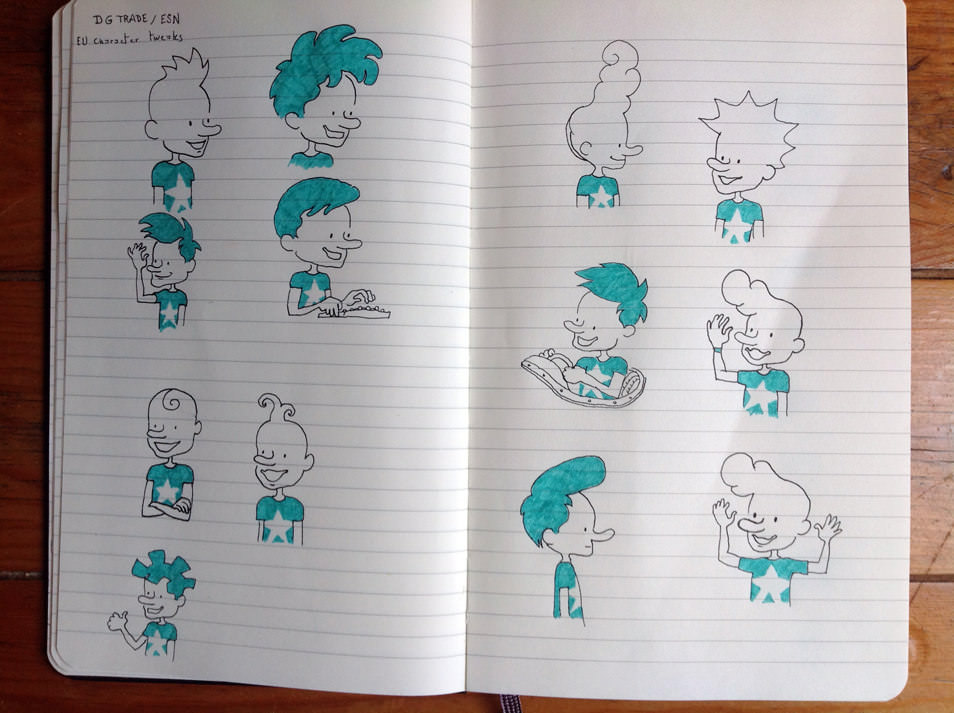 DG TRADE / ESN
EU character tweaks